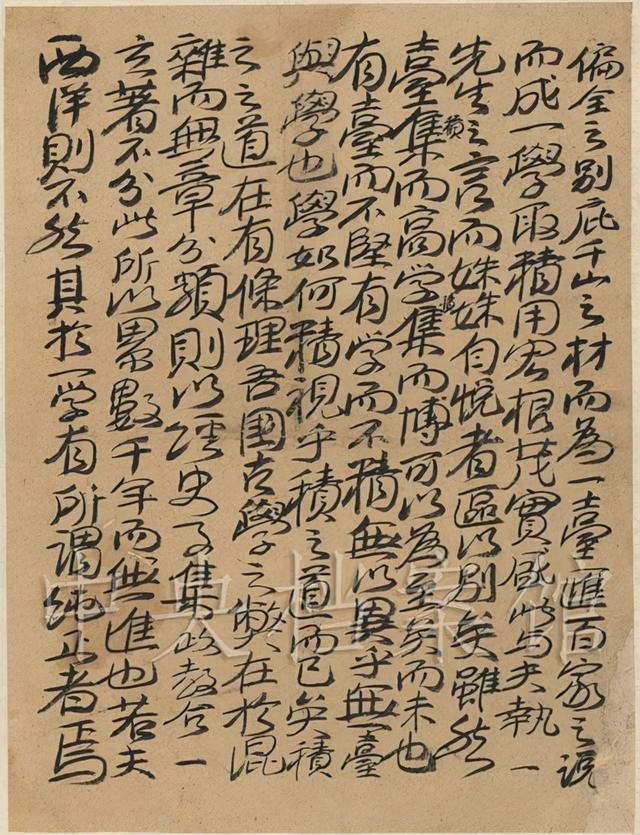 偏全之別庇千山之材而為一臺匯百家之說
而成一學取積用宏根茂實盛此与夫執一
先生之言而姝姝自悅者區以別矣雖然
臺積集而高学集而博可以為至矣而未也
有臺而不堅有学而不精無以異乎無臺
與學也學如何精視乎積之之道而已矣積
之之道在有條理吾國古學之弊在於混
雜而無章分類則以經史子集政教合一
玄著不分此所以累數千年而無進也若夫
西洋則不然其於一学有所謂純正者焉
中央档案馆